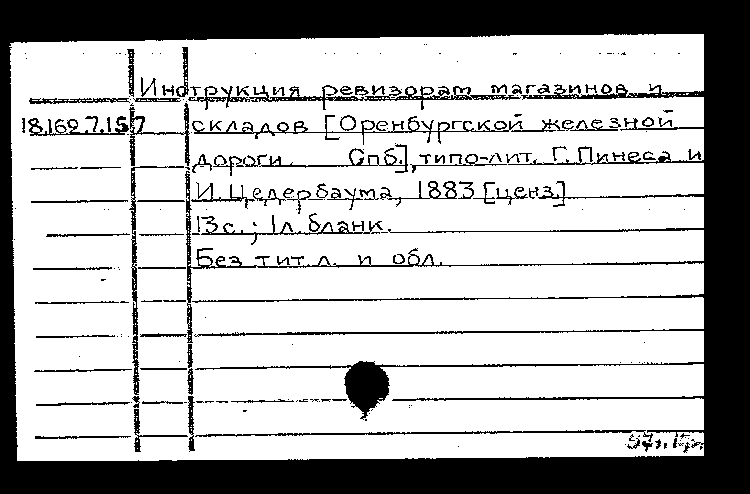 Инструкция ревизорам магазинов и
18.162.7.157 складов [Оренбургской железной
дороги. Спб.], типо-лит. Г. Пинеса и
И. Цедербаума, 1883 [ценз.]
13 с.; 1 л. бланк.
Без тит. л. и обл.